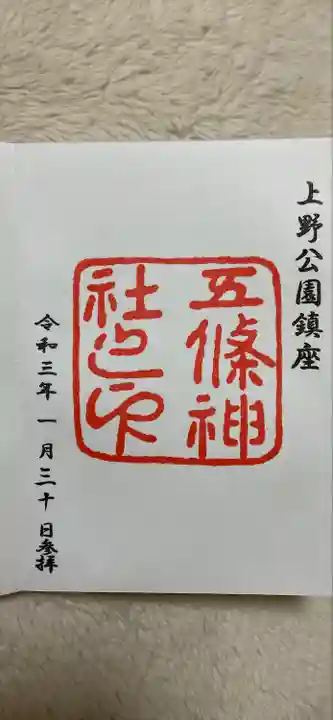 上野公園鎮座
五條神
社之印
令和三年一月三十日参拝